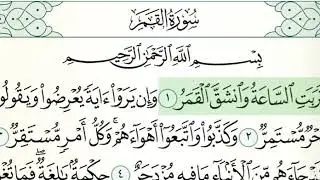 سُورَةُ القَمَرِ
بِسْمِ اللَّهِ الرَّحْمَٰنِ الرَّحِيمِ
السَّاعَةُ وَانشَقَّ الْقَمَرُ ١ وَإِن يَرَوْا۟ ءَايَةً يُعْرِضُوا۟ وَيَقُولُوا۟
مُّسْتَمِرٌّ ٢ وَكَذَّبُوا۟ وَاتَّبَعُوٓا۟ أَهْوَآءَهُمْ ۚ وَكُلُّ أَمْرٍ مُّسْتَقِرٌّ ٣
جَآءَهُم مِّنَ الْأَنۢبَآءِ مَا فِيهِ مُزْدَجَرٌ ٤ حِكْمَةٌۢ بَٰلِغَةٌ ۖ فَمَا